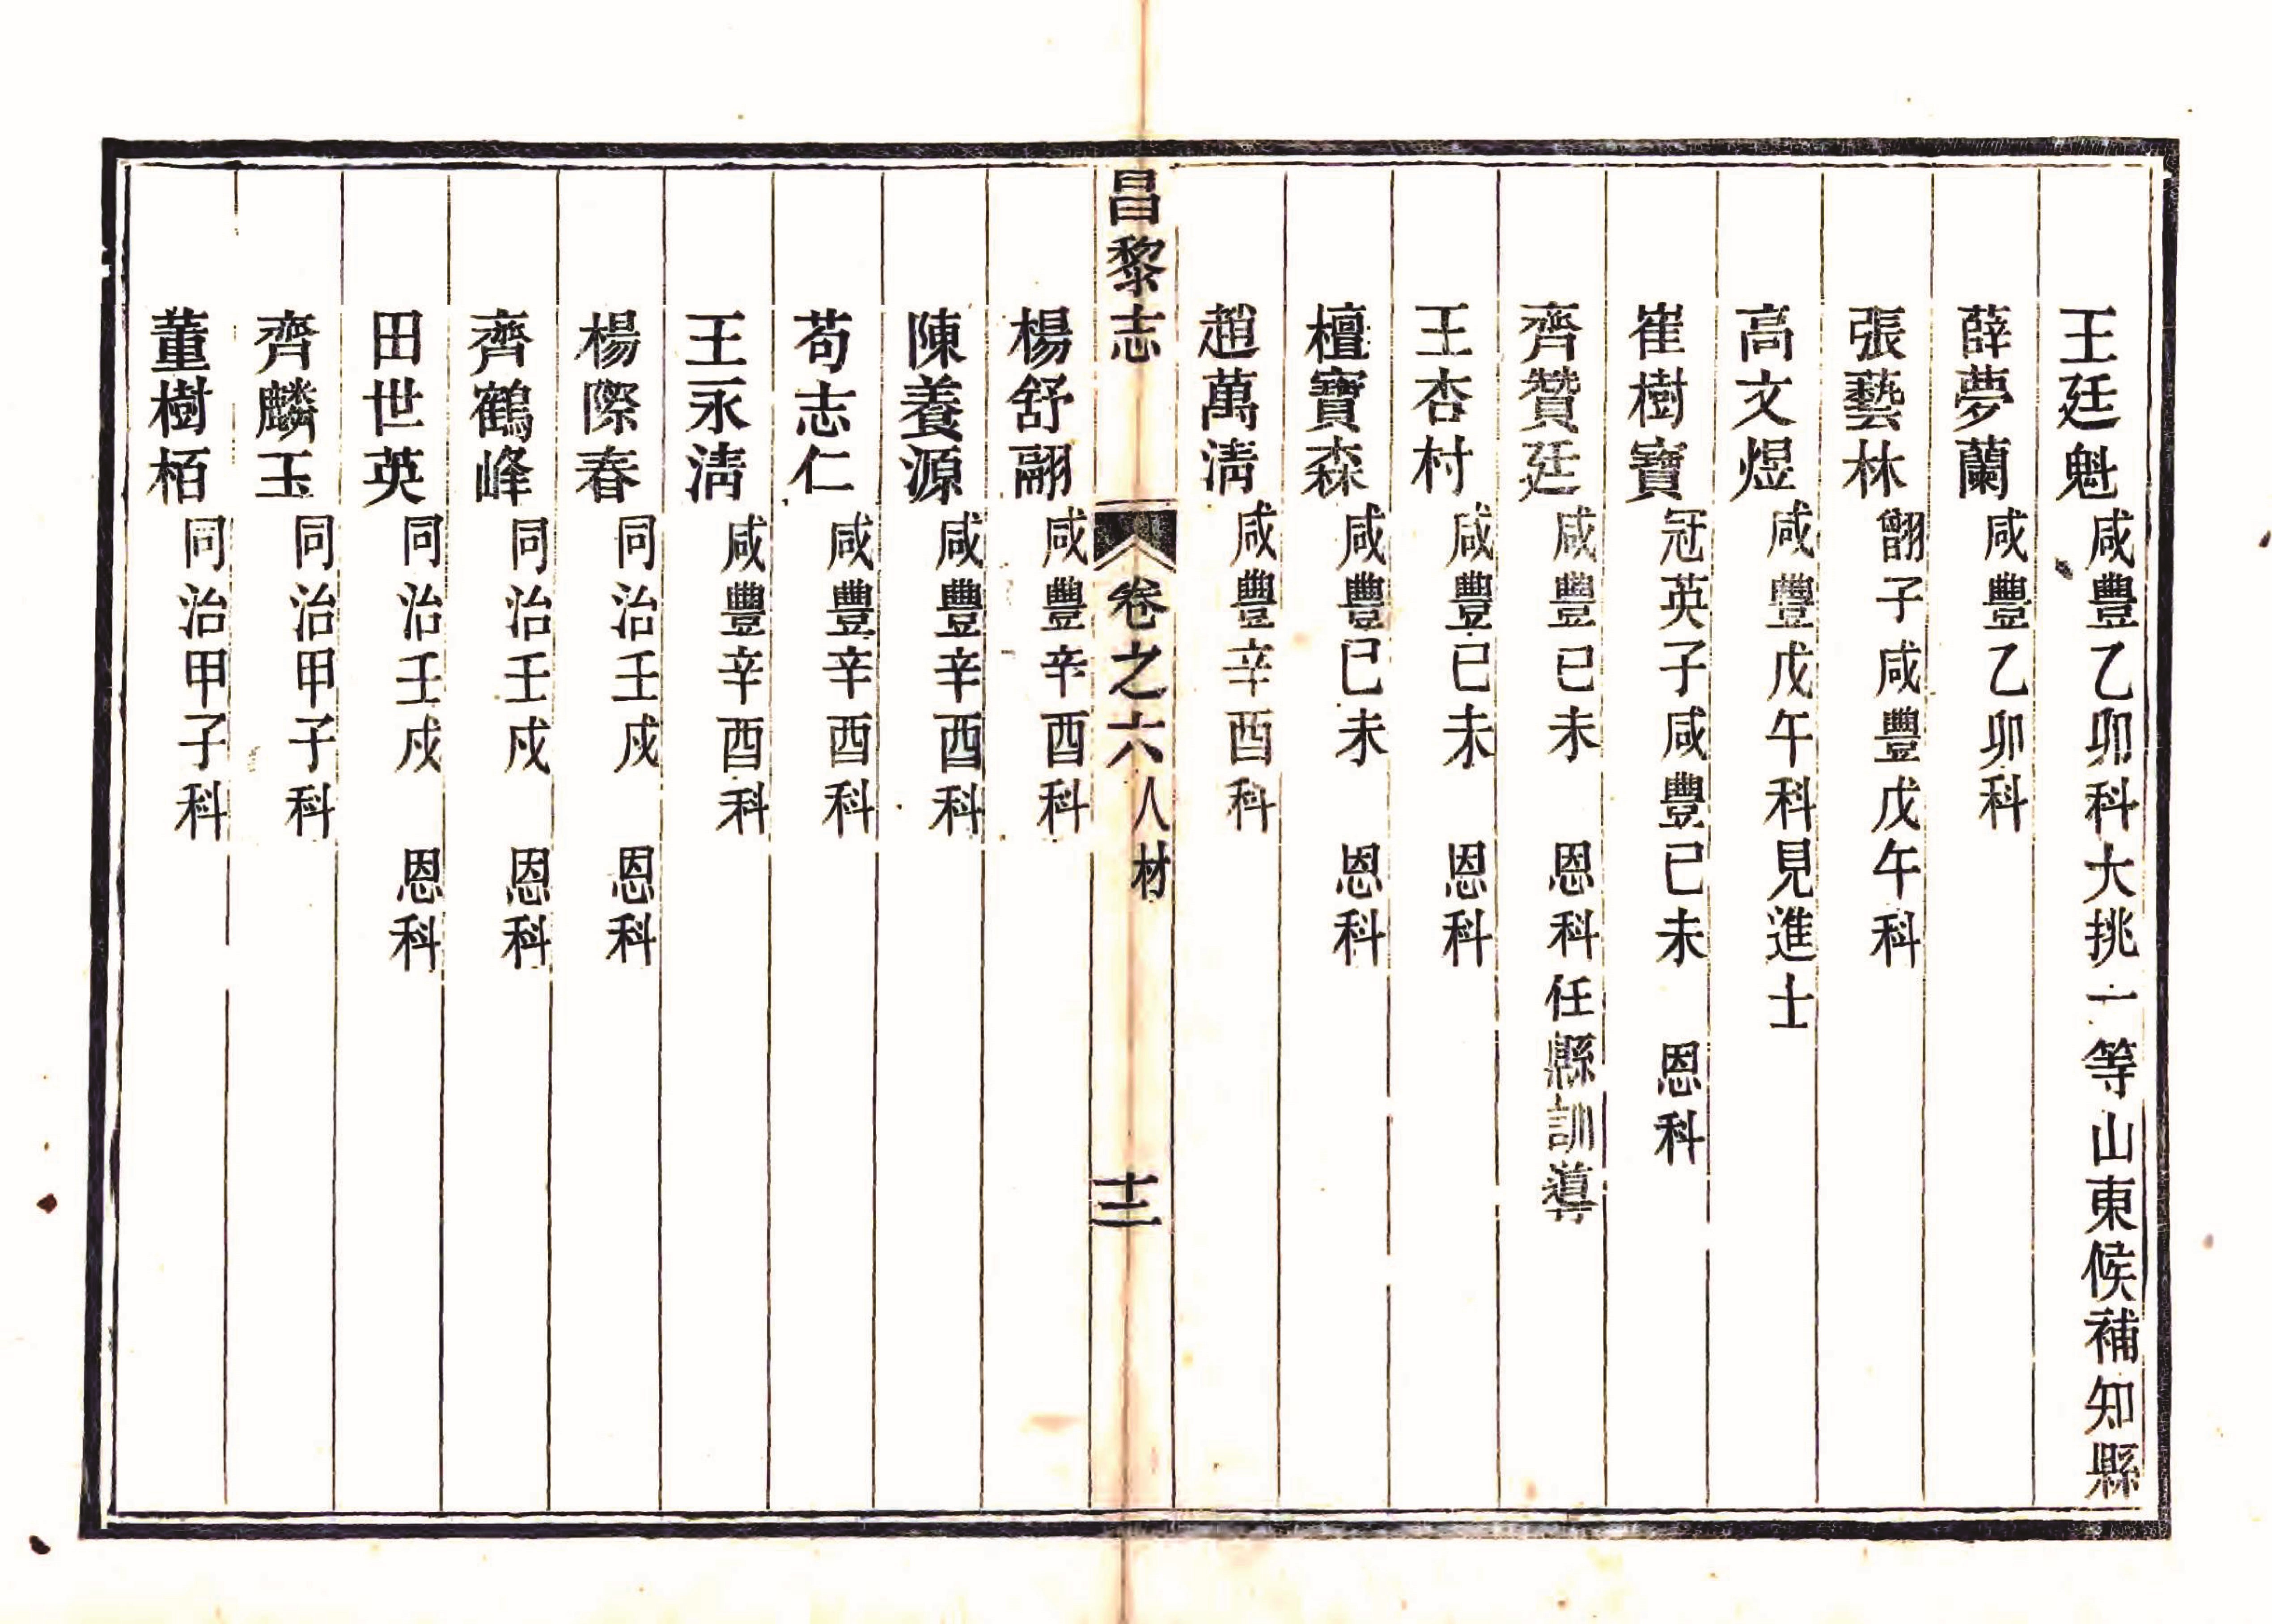 王廷魁咸豐乙卯科大挑一等山東候補知縣
薛夢蘭咸豐乙卯科
張藝林翮子咸豐戊午科
高文煜咸豐戊午科見進士
崔樹寶冠英子咸豐已未　恩科
齊贊廷咸豐已未　恩科任縣訓導
王杏村咸豐已未　恩科
檀寶森咸豐已未　恩科
趙萬清咸豐辛酉科
昌黎志　卷之六人材　十二
楊舒翮咸豐辛酉科
陳養源咸豐辛酉科
苟志仁咸豐辛酉科
王永清咸豐辛酉科
楊際春同治壬戌　恩科
齊鶴峰同治壬戌　恩科
田世英同治壬戌　恩科
齊麟玉同治甲子科
董樹栢同治甲子科